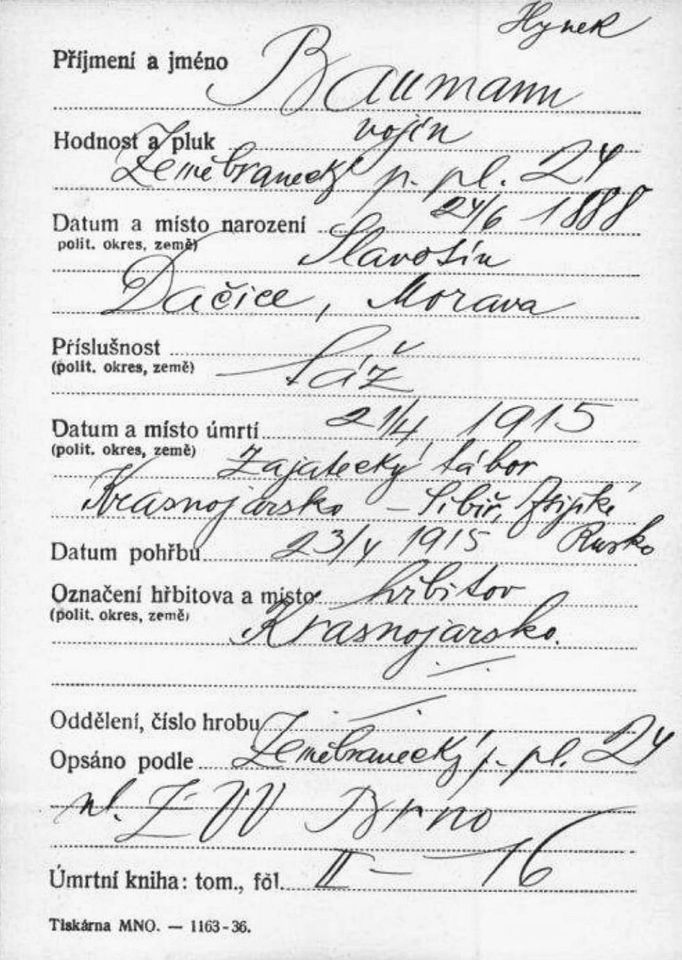 Hynek
Příjmení a jméno Baumann
Hodnost a pluk vojín
Zeměbranecký p. pl. 24
Datum a místo narození 24/6 1888
polit. okres, země) Slavošín
Dačice, Morava
Příslušnost
(polit. okres, země) Sáž
Datum a místo úmrtí 21/4 1915
(polit. okres, země) Zajatecký tábor
Krasnojarsko – Sibiř,
Datum pohřbu 23/4 1915 Rusko
Označení hřbitova a místo hřbitov
(polit. okres, země) Krasnojarsko.
Oddělení, číslo hrobu
Opsáno podle Zeměbranecký p. pl. 24
ZVV Brno
Úmrtní kniha: tom., fól. II – 16
Tiskárna MNO. — 1163-36.